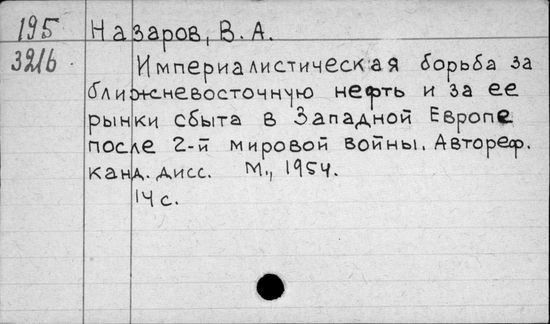 195 Назаров, В. А.
3216 Империалистическая борьба за
ближневосточную нефть и за ее
рынки сбыта в Западной Европе
после 2-й мировой войны. Автореф.
канд. дисс. М., 1954.
14 с.